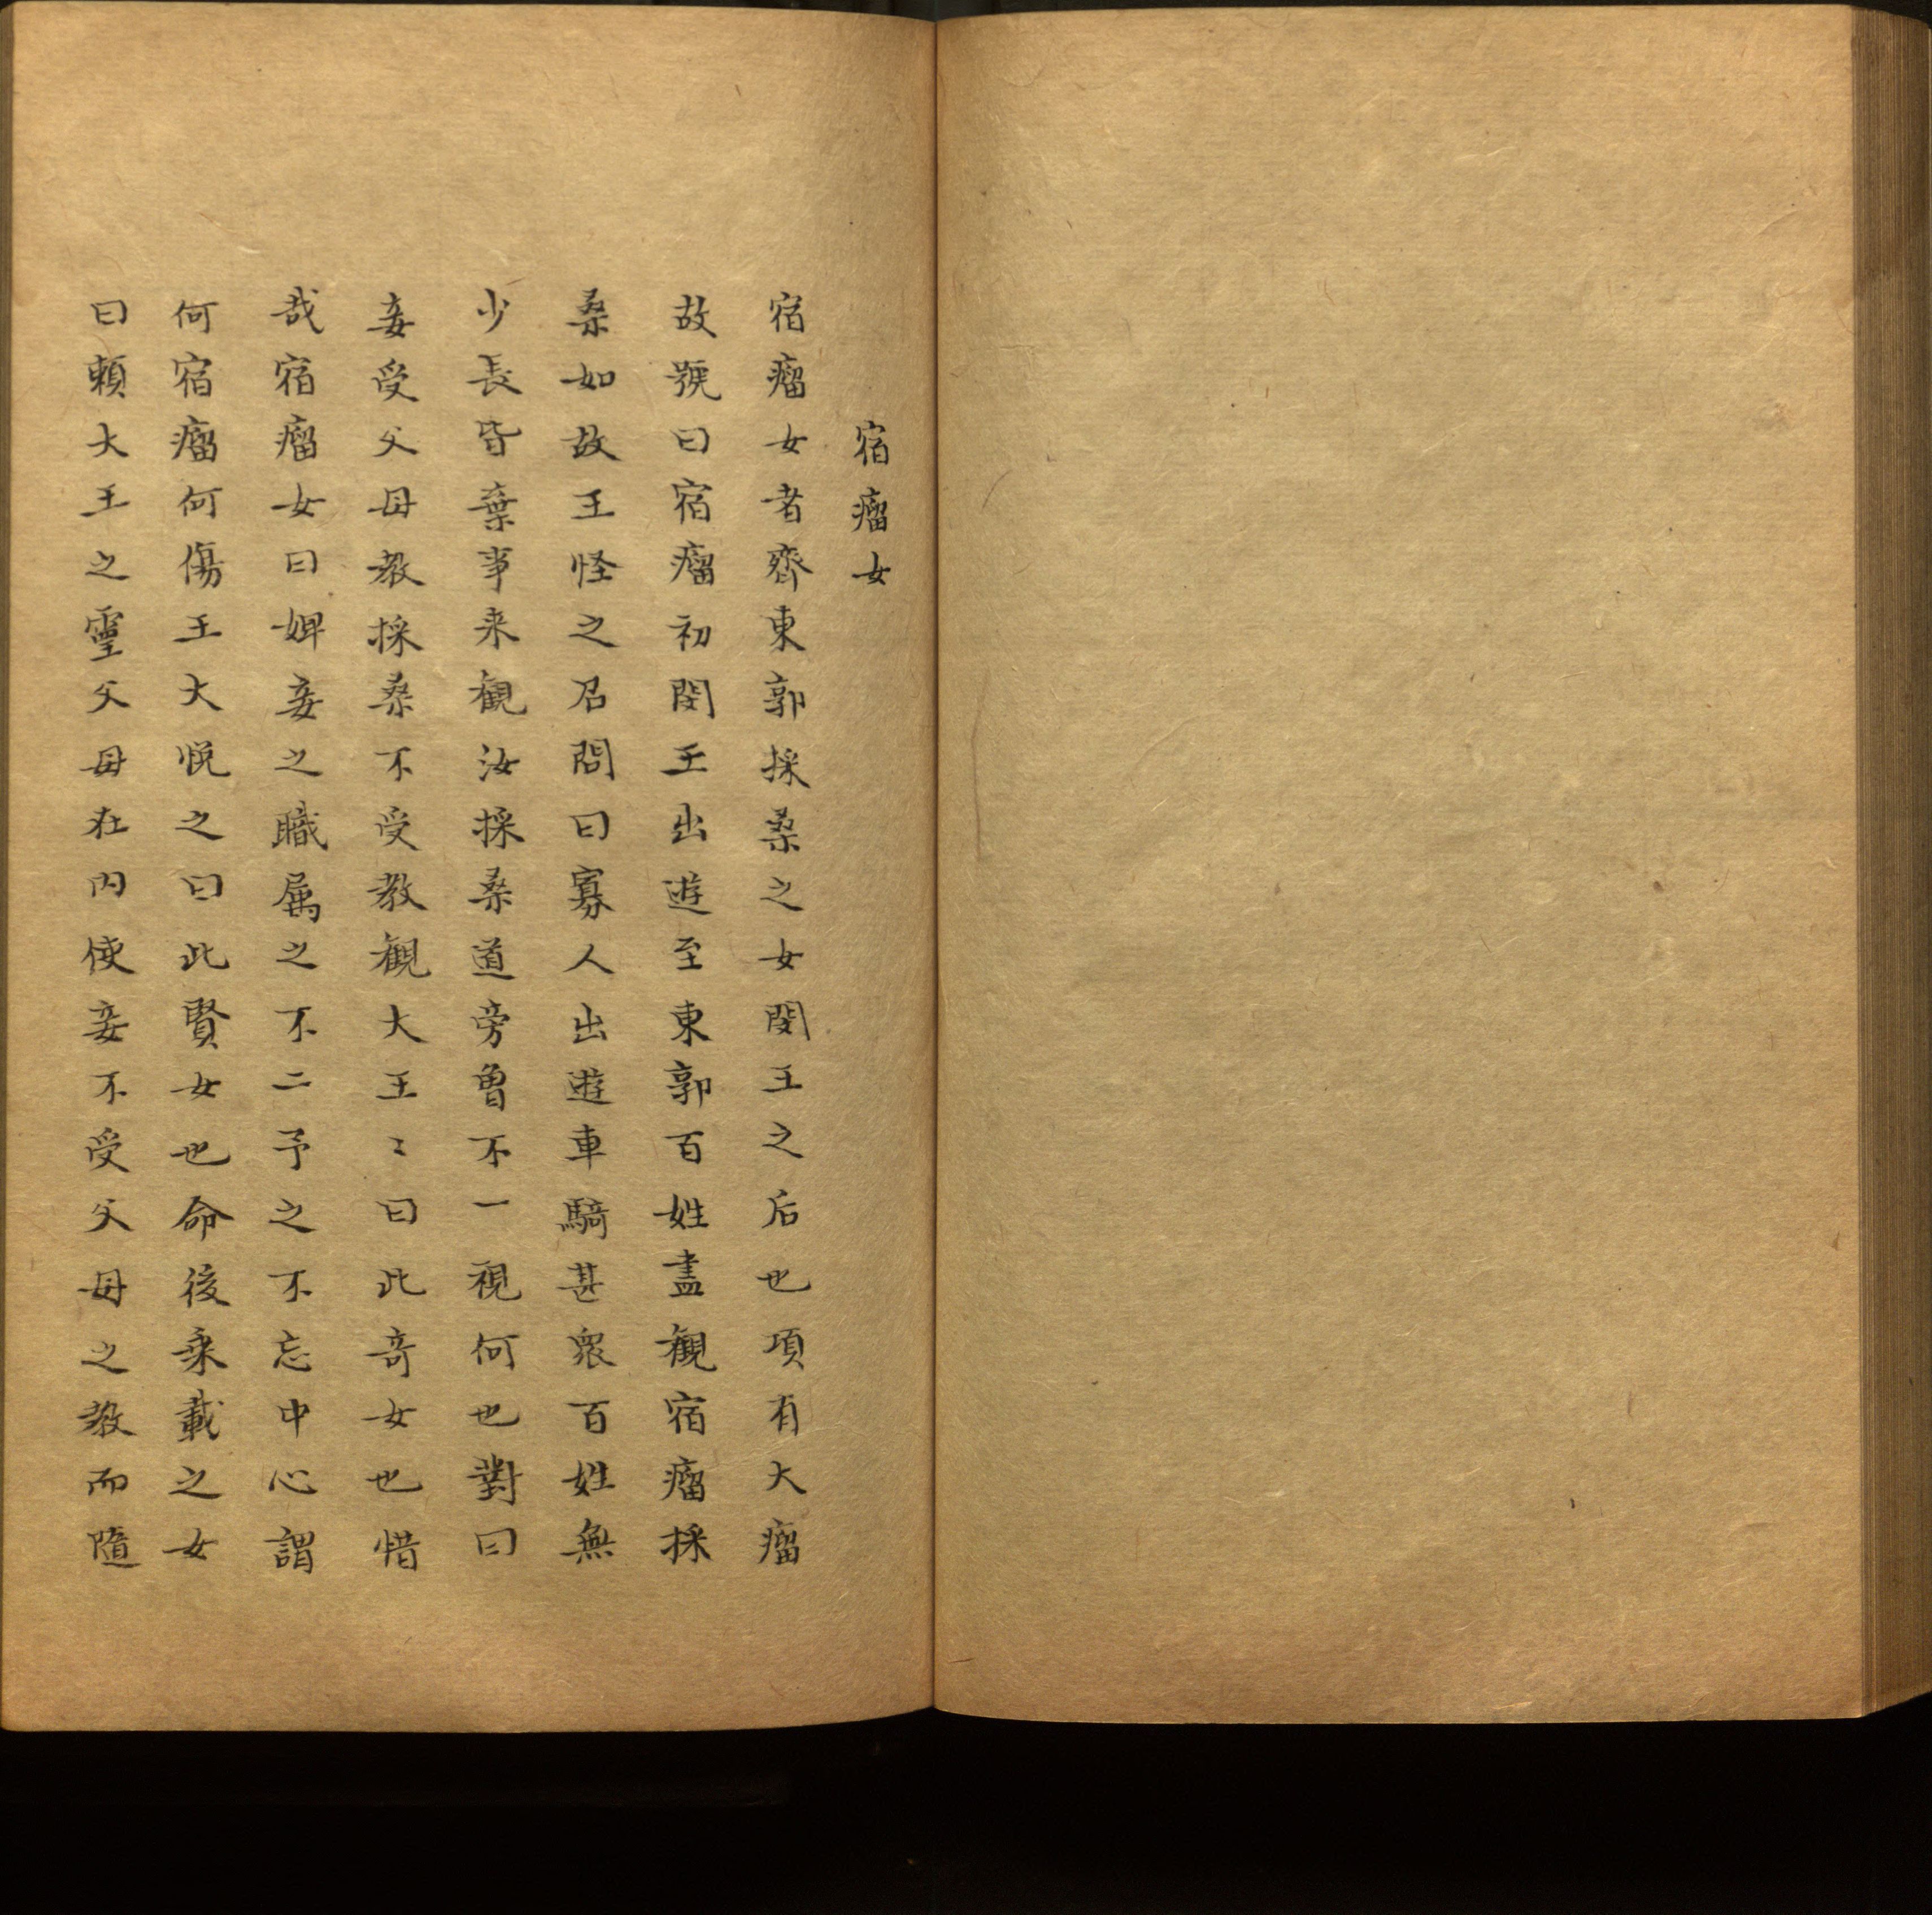 宿瘤女
宿瘤女者齊東郭採桒之女閔王之后也項有大瘤
故號曰宿瘤初閔王出遊至東郭百姓盡觀宿瘤採
桒如故王怪之召問曰寡人出遊車騎甚眾百姓無
少長皆棄事来觀汝採桒道旁曽不一視何也對曰
妾受父母教採桒不受教觀大王〻曰此奇女也惜
哉宿瘤女曰婢妾之職属之不二予之不忘中心謂
何宿瘤何傷王大悅之曰此賢女也命後乗載之女
曰頼大王之靈父母在内使妾不受父母之教而隨